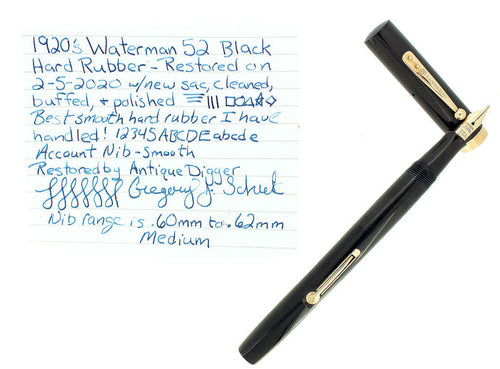 1920's Waterman 52 Black
Hard Rubber - Restored on
2-5-2020 w/new sac, cleaned,
buffed, + polished
Best smooth hard rubber I have
handled! 12345ABCDEabcde
Account Nib-Smooth
Restored by Antique Digger
Gregory J.
Nib range is .60mm to .62mm
Medium